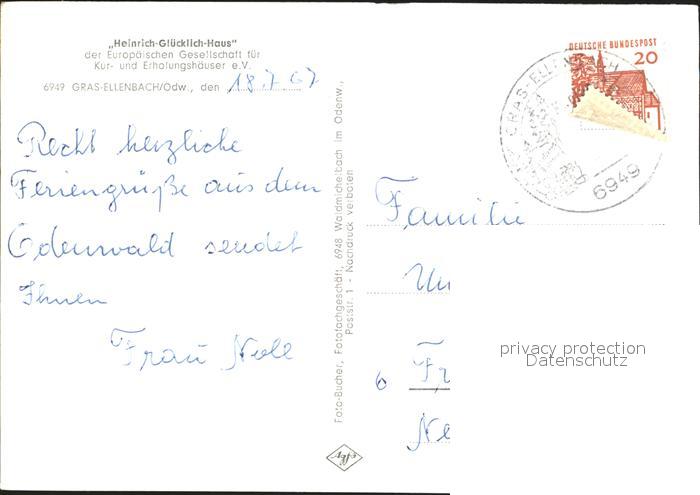 „Heinrich-Glücklich-Haus"
der Europäischen Gesellschaft für
Kur- und Erholungshäuser e.V.
6949 GRAS-ELLENBACH/Odw., den 18.7.67
Recht herzliche
Feriengrüße aus dem
Odenwald sendet
Ihnen
Frau Nell
Foto-Bucher, Fotofachgeschäft, 6948 Waldmichelbach im Odenw.,
Poststr. 1 - Nachdruck verboten
Agfa
DEUTSCHE BUNDESPOST
20
GRAS-ELLENBACH
6949
Familie
Un
6 Fr
Ne
privacy protection
Datenschutz